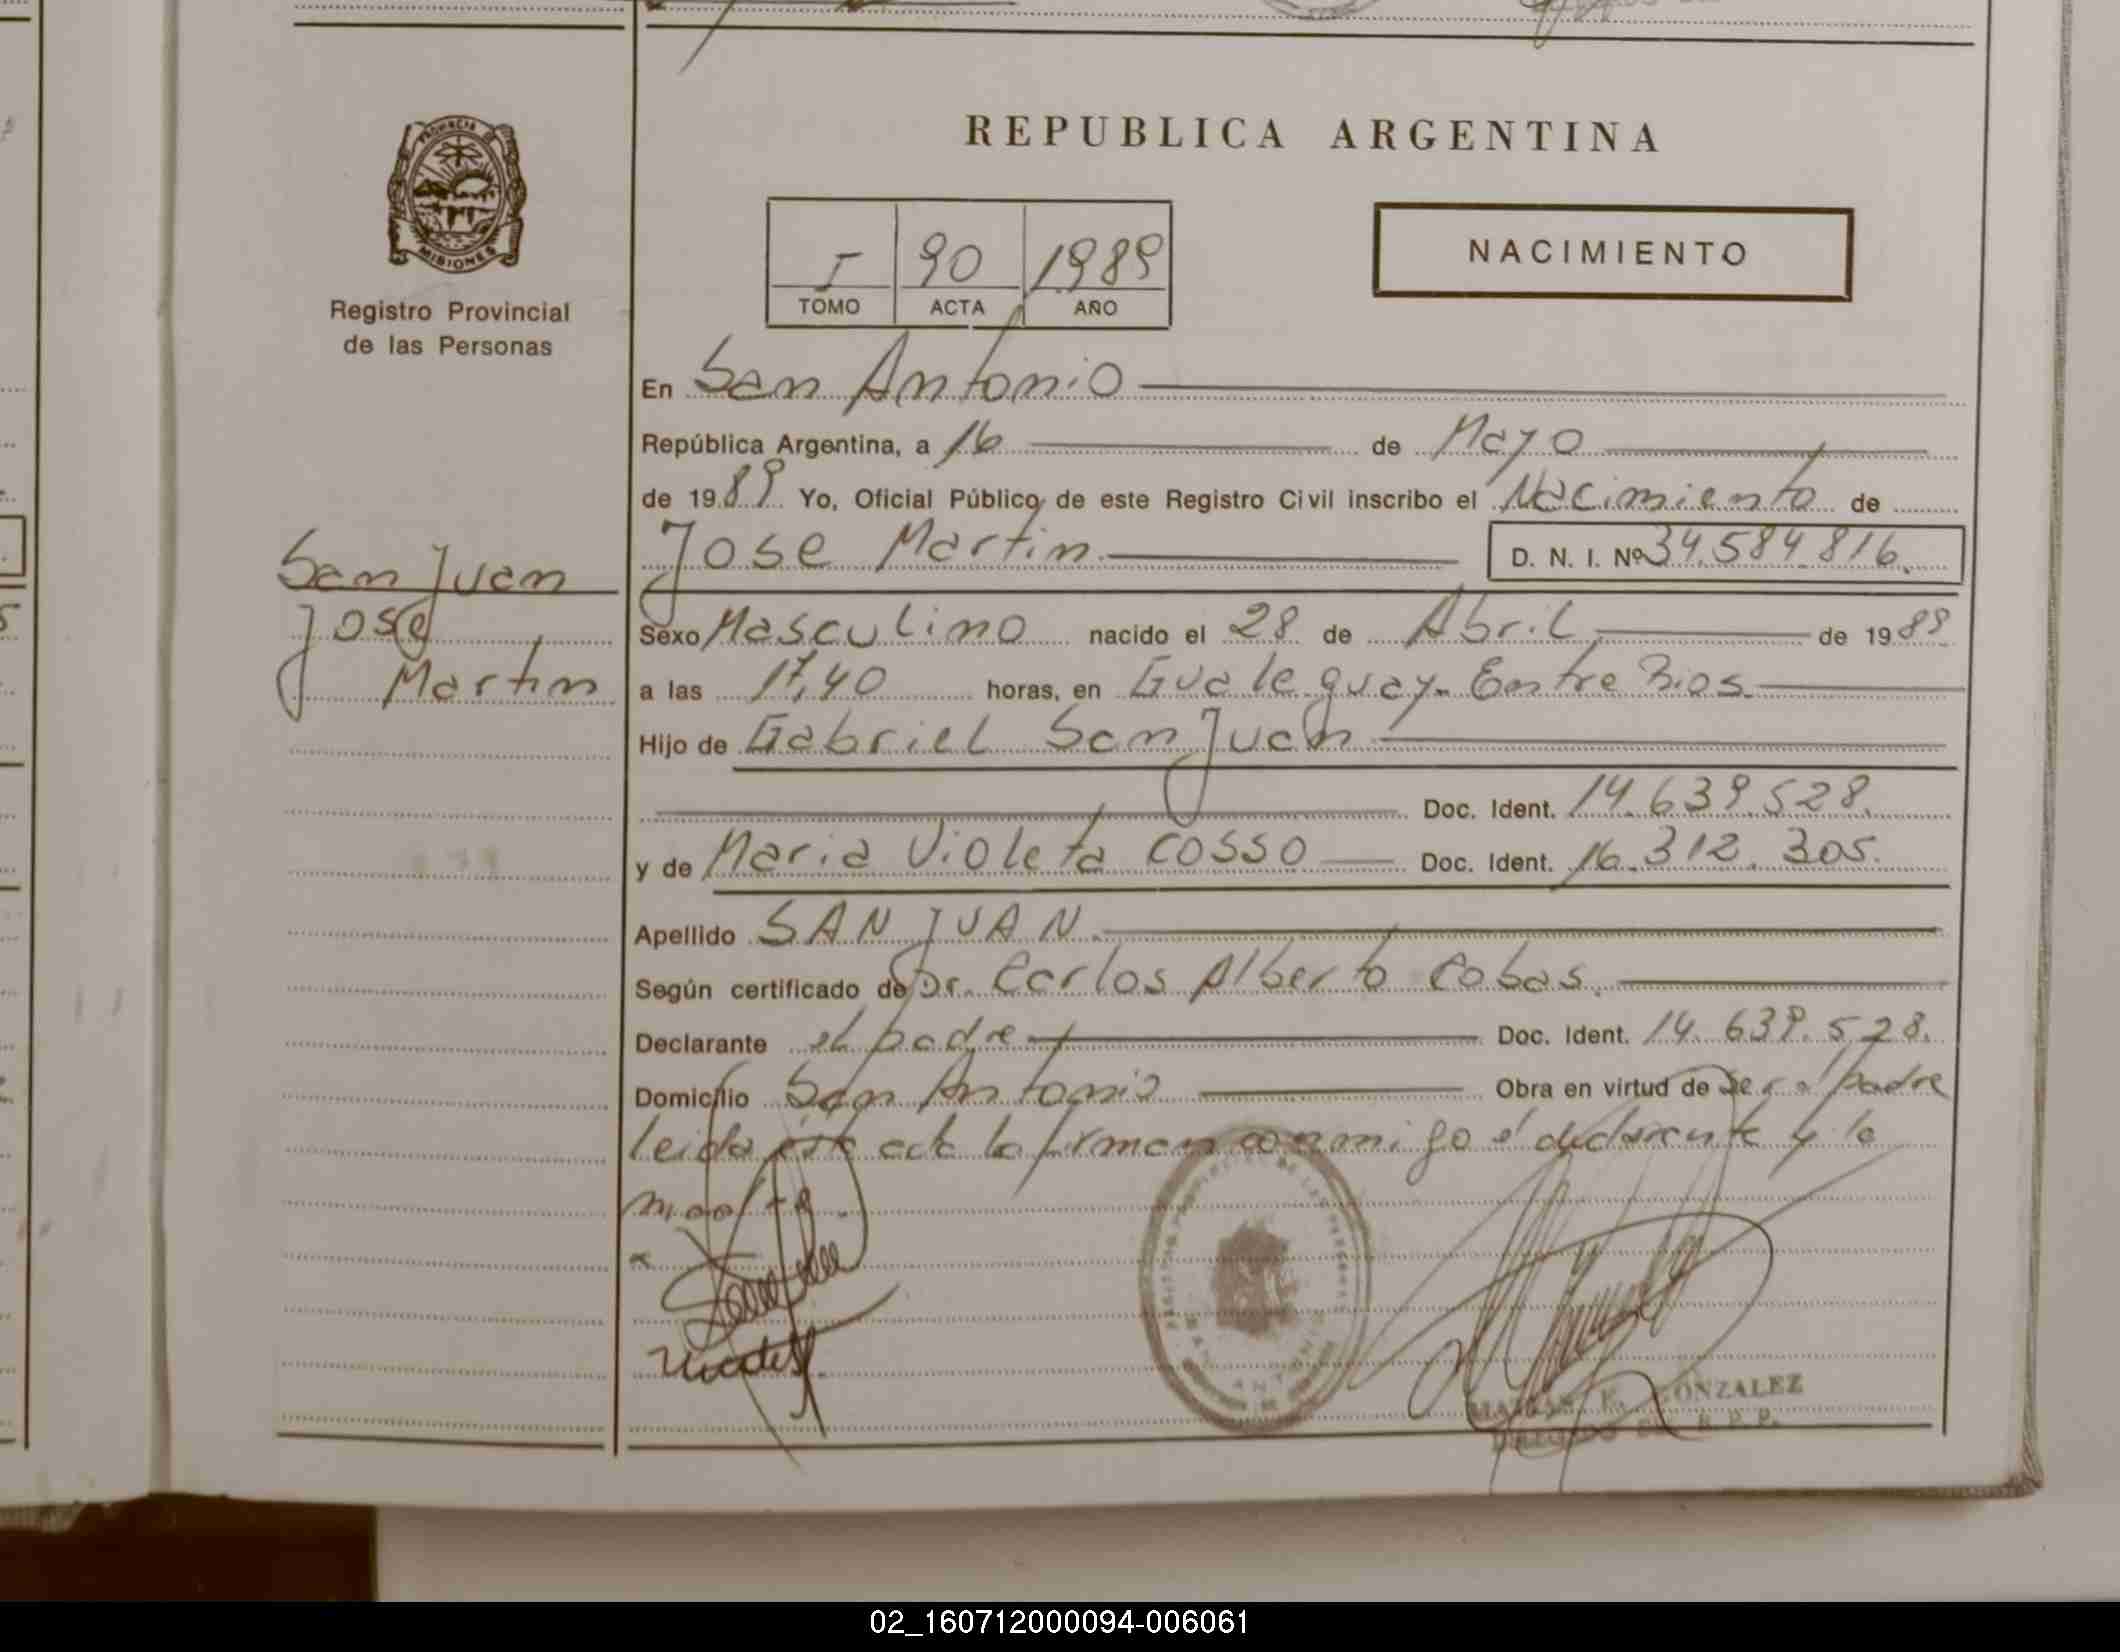 REPUBLICA ARGENTINA
PROVINCIA DE MISIONES
Registro Provincial
de las Personas
I 90 1989
TOMO ACTA AÑO
NACIMIENTO
En San Antonio
República Argentina, a 16 de Mayo
de 1989 Yo, Oficial Público de este Registro Civil inscribo el Nacimiento de
Jose Martin D. N. I. Nº 34.584.816.
San Juan
Jose
Martin
Sexo Masculino nacido el 28 de Abril de 1989
a las 17,40 horas, en Gualeguay. Entre Rios.
Hijo de Gabriel San Juan
Doc. Ident. 14.639.528.
y de Maria Violeta Cosso Doc. Ident. 16.312.305.
Apellido SAN JUAN.
Según certificado de Dr. Carlos Alberto Cobas.
Declarante el padre Doc. Ident. 14.639.528.
Domicilio San Antonio Obra en virtud de ser el padre
leida esta acta la firman conmigo el declarante y la
madre.
REGISTRO PROVINCIAL DE LAS PERSONAS
SAN ANTONIO
GONZALEZ
R. P. P.
02_160712000094-006061